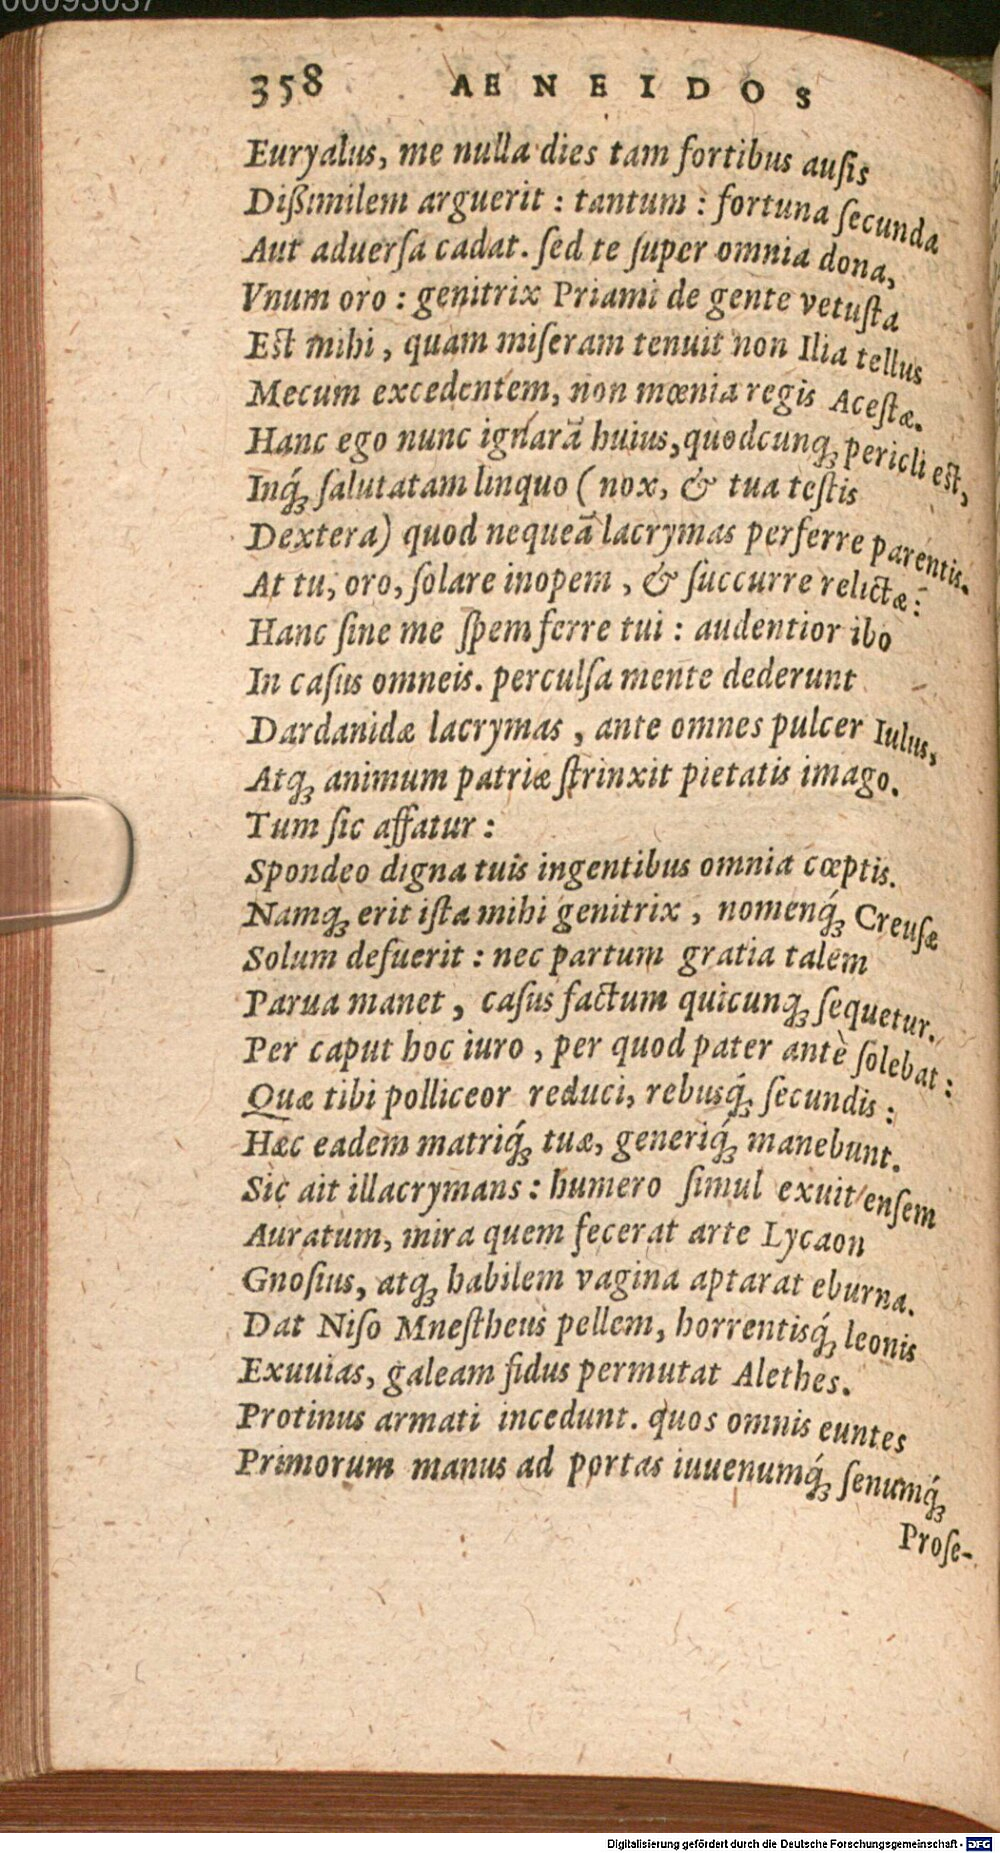 00093037
358 AENEIDOS
Euryalus, me nulla dies tam fortibus auſis
Dißimilem arguerit : tantum : fortuna ſecunda
Aut aduerſa cadat. ſed te ſuper omnia dona,
Vnum oro : genitrix Priami de gente vetuſta
Est mihi, quam miſeram tenuit non Ilia tellus
Mecum excedentem, non mœnia regis Aceſtæ.
Hanc ego nunc ignarā huius, quodcunq; pericli est,
Inq́; ſalutatam linquo (nox, & tua teſtis
Dextera) quod nequeā lacrymas perferre parentis.
At tu, oro, ſolare inopem, & ſuccurre relictæ:
Hanc ſine me ſpem ferre tui : audentior ibo
In caſus omneis. perculſa mente dederunt
Dardanidæ lacrymas, ante omnes pulcer Iulus,
Atq; animum patriæ ſtrinxit pietatis imago.
Tum ſic affatur :
Spondeo digna tuis ingentibus omnia cœptis.
Namq; erit iſta mihi genitrix, nomenq́; Creuſæ
Solum defuerit : nec partum gratia talem
Parua manet, caſus factum quicunq; ſequetur.
Per caput hoc iuro, per quod pater antè ſolebat :
Quæ tibi polliceor reduci, rebusq́; ſecundis :
Hæc eadem matriq́; tuæ, generiq́; manebunt.
Sic ait illacrymans : humero ſimul exuit enſem
Auratum, mira quem fecerat arte Lycaon
Gnoſius, atq; habilem vagina aptarat eburna.
Dat Niſo Mneſtheus pellem, horrentisq́; leonis
Exuuias, galeam fidus permutat Alethes.
Protinus armati incedunt. quos omnis euntes
Primorum manus ad portas iuuenumq́; ſenumq́;
Proſe-
Digitalisierung gefördert durch die Deutsche Forschungsgemeinschaft - DFG